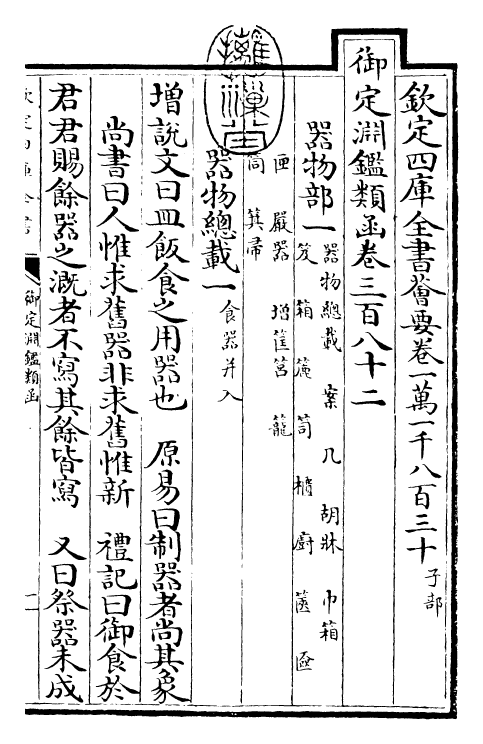 欽定四庫全書薈要卷一萬一千八百三十 子部
御定淵鑑類函卷三百八十二
器物部一
器物總載 案 几 胡牀 巾箱
笈 箱 簏 笥 廚 篋 匳
匣 嚴器 增筐筥 籠
筒 箕帚
器物總載一 食器并入
增說文曰皿飯食之用器也 原易曰制器者尚其象
尚書曰人惟求舊器非求舊惟新 禮記曰御食於
君君賜餘器之溉者不寫其餘皆寫 又曰祭器未成
欽定四庫全書
御定淵鑑類函
摛藻堂